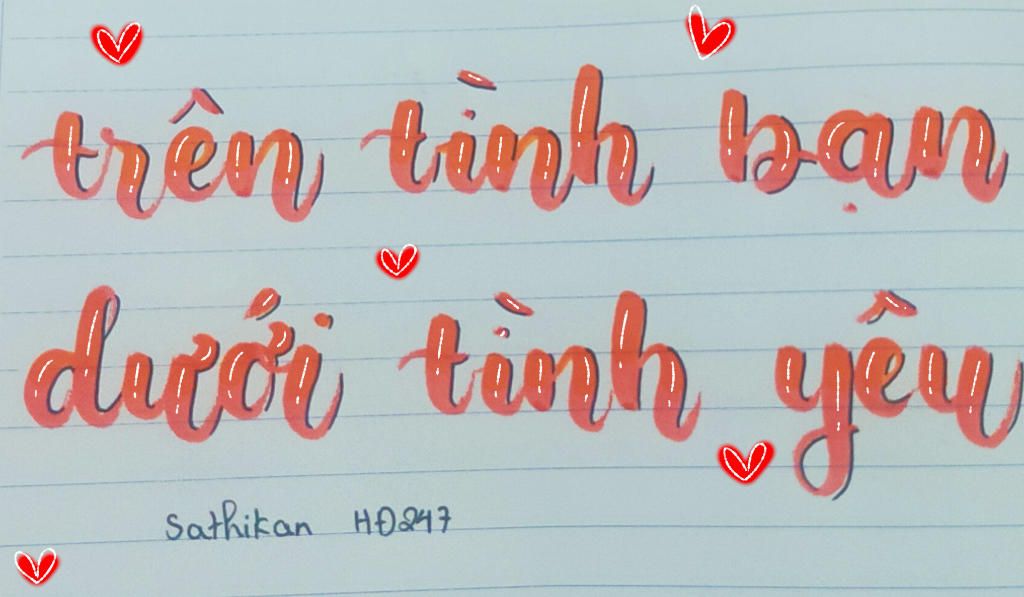 trên tình bạn
dưới tình yêu
Sathikan HĐ247